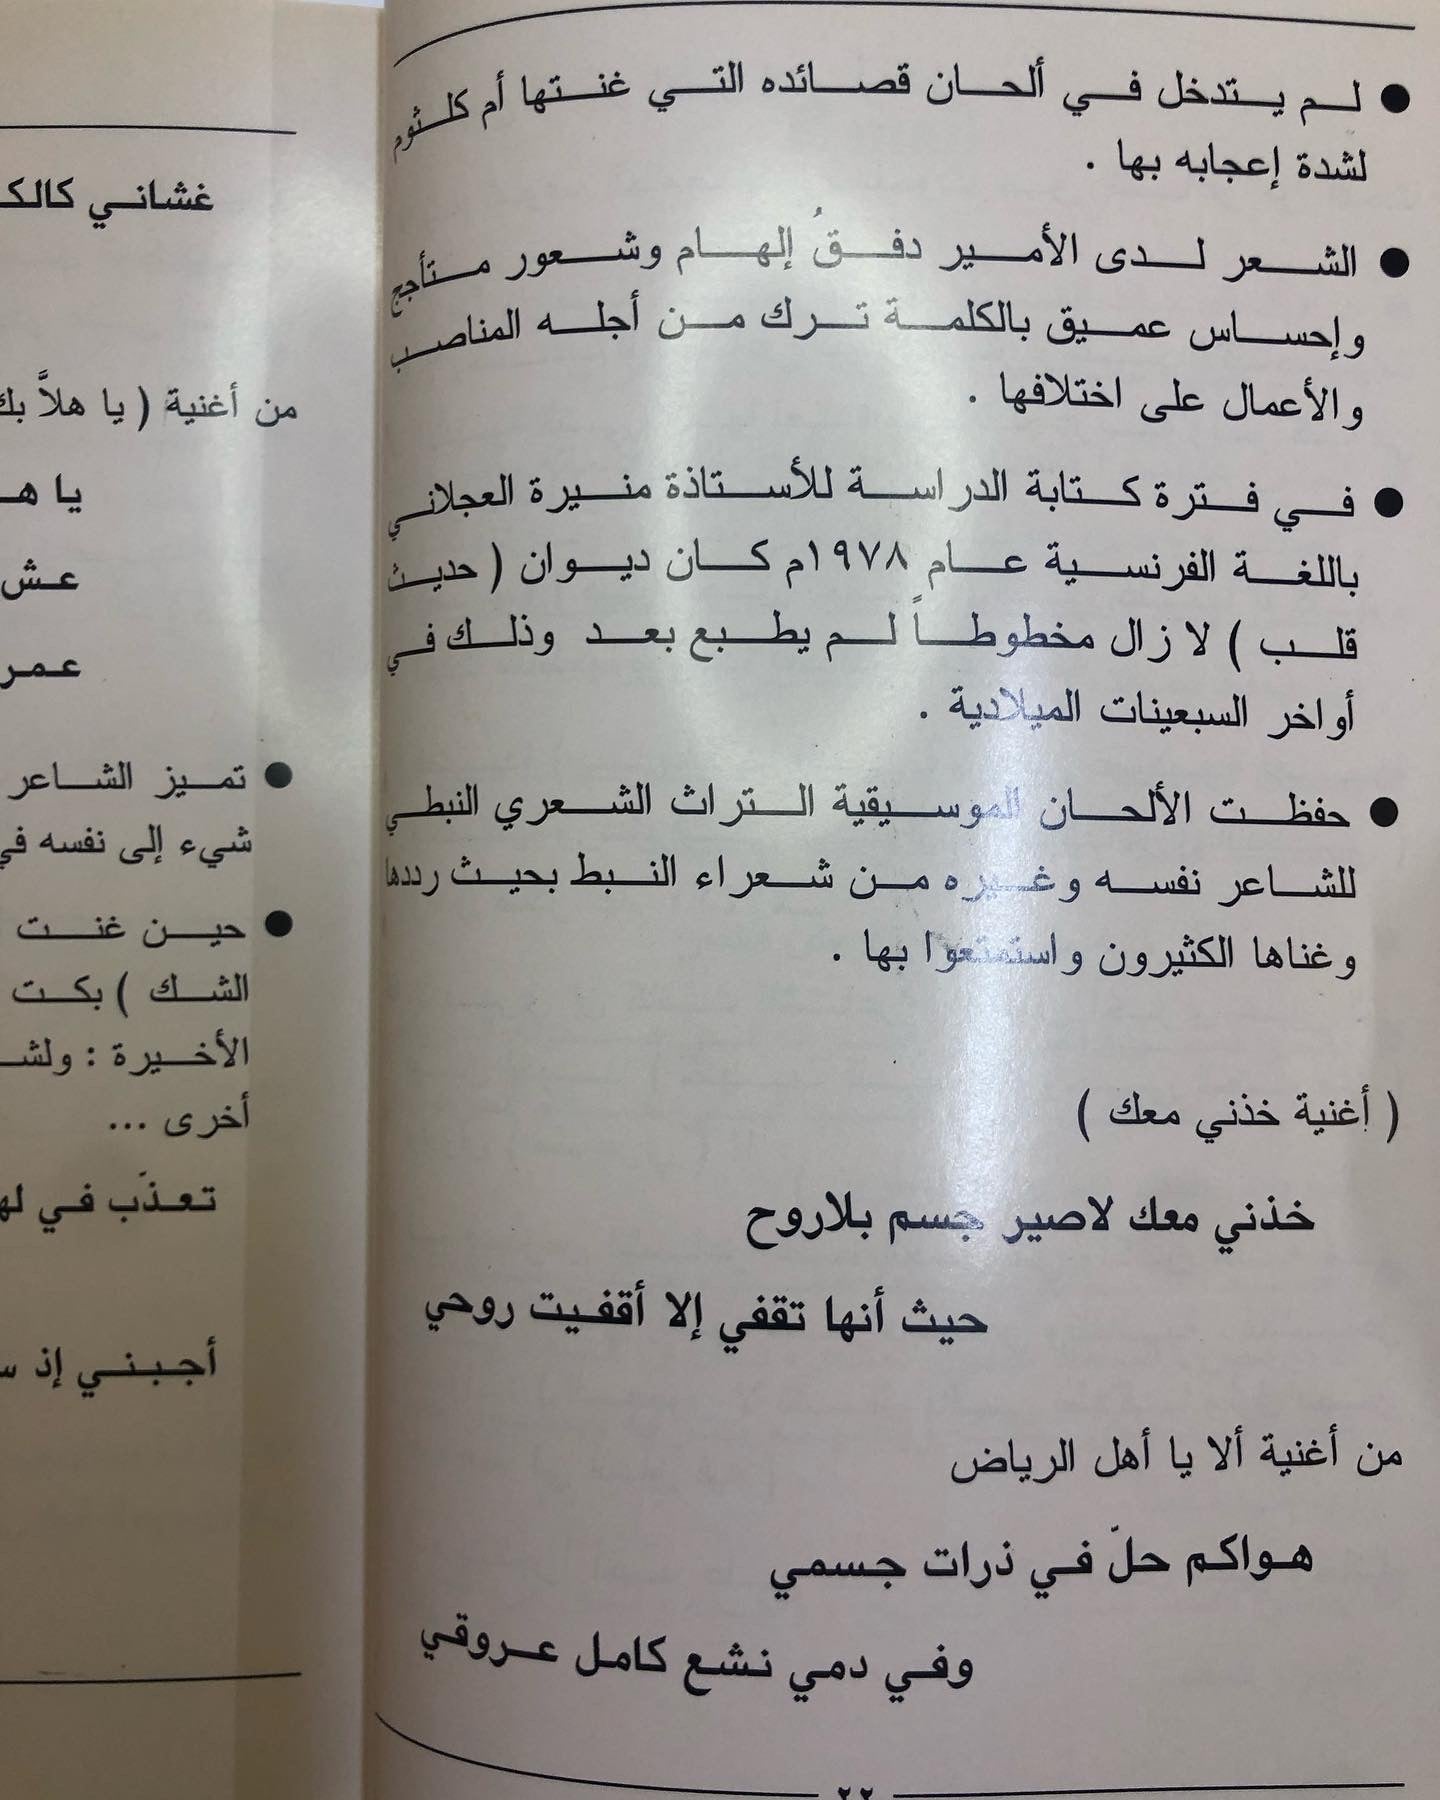 ● لم يتدخل في ألحان قصائده التي غنتها أم كلثوم
لشدة إعجابه بها .
● الشعر لدى الأمير دفقُ إلهام وشعور متأجج
وإحساس عميق بالكلمة ترك من أجله المناصب
والأعمال على اختلافها .
● في فترة كتابة الدراسة للأستاذة منيرة العجلاني
باللغة الفرنسية عام ١٩٧٨م كان ديوان ( حديث
قلب ) لا زال مخطوطاً لم يطبع بعد وذلك في
أواخر السبعينات الميلادية .
● حفظت الألحان الموسيقية التراث الشعري النبطي
للشاعر نفسه وغيره من شعراء النبط بحيث رددها
وغناها الكثيرون واستمتعوا بها .
( أغنية خذني معك )
خذني معك لاصير جسم بلاروح
حيث أنها تقفي إلا أقفيت روحي
من أغنية ألا يا أهل الرياض
هواكم حلّ في ذرات جسمي
وفي دمي نشع كامل عروقي
٢٢
غشاني
من أغنية ( يا هلاَّ بك
يا
● تميز الشاعر
شيء إلى نفسه في
● حين غنت
الشك ) بكت
الأخيرة :
أخرى ...
تعذّب في
أجبني إذ